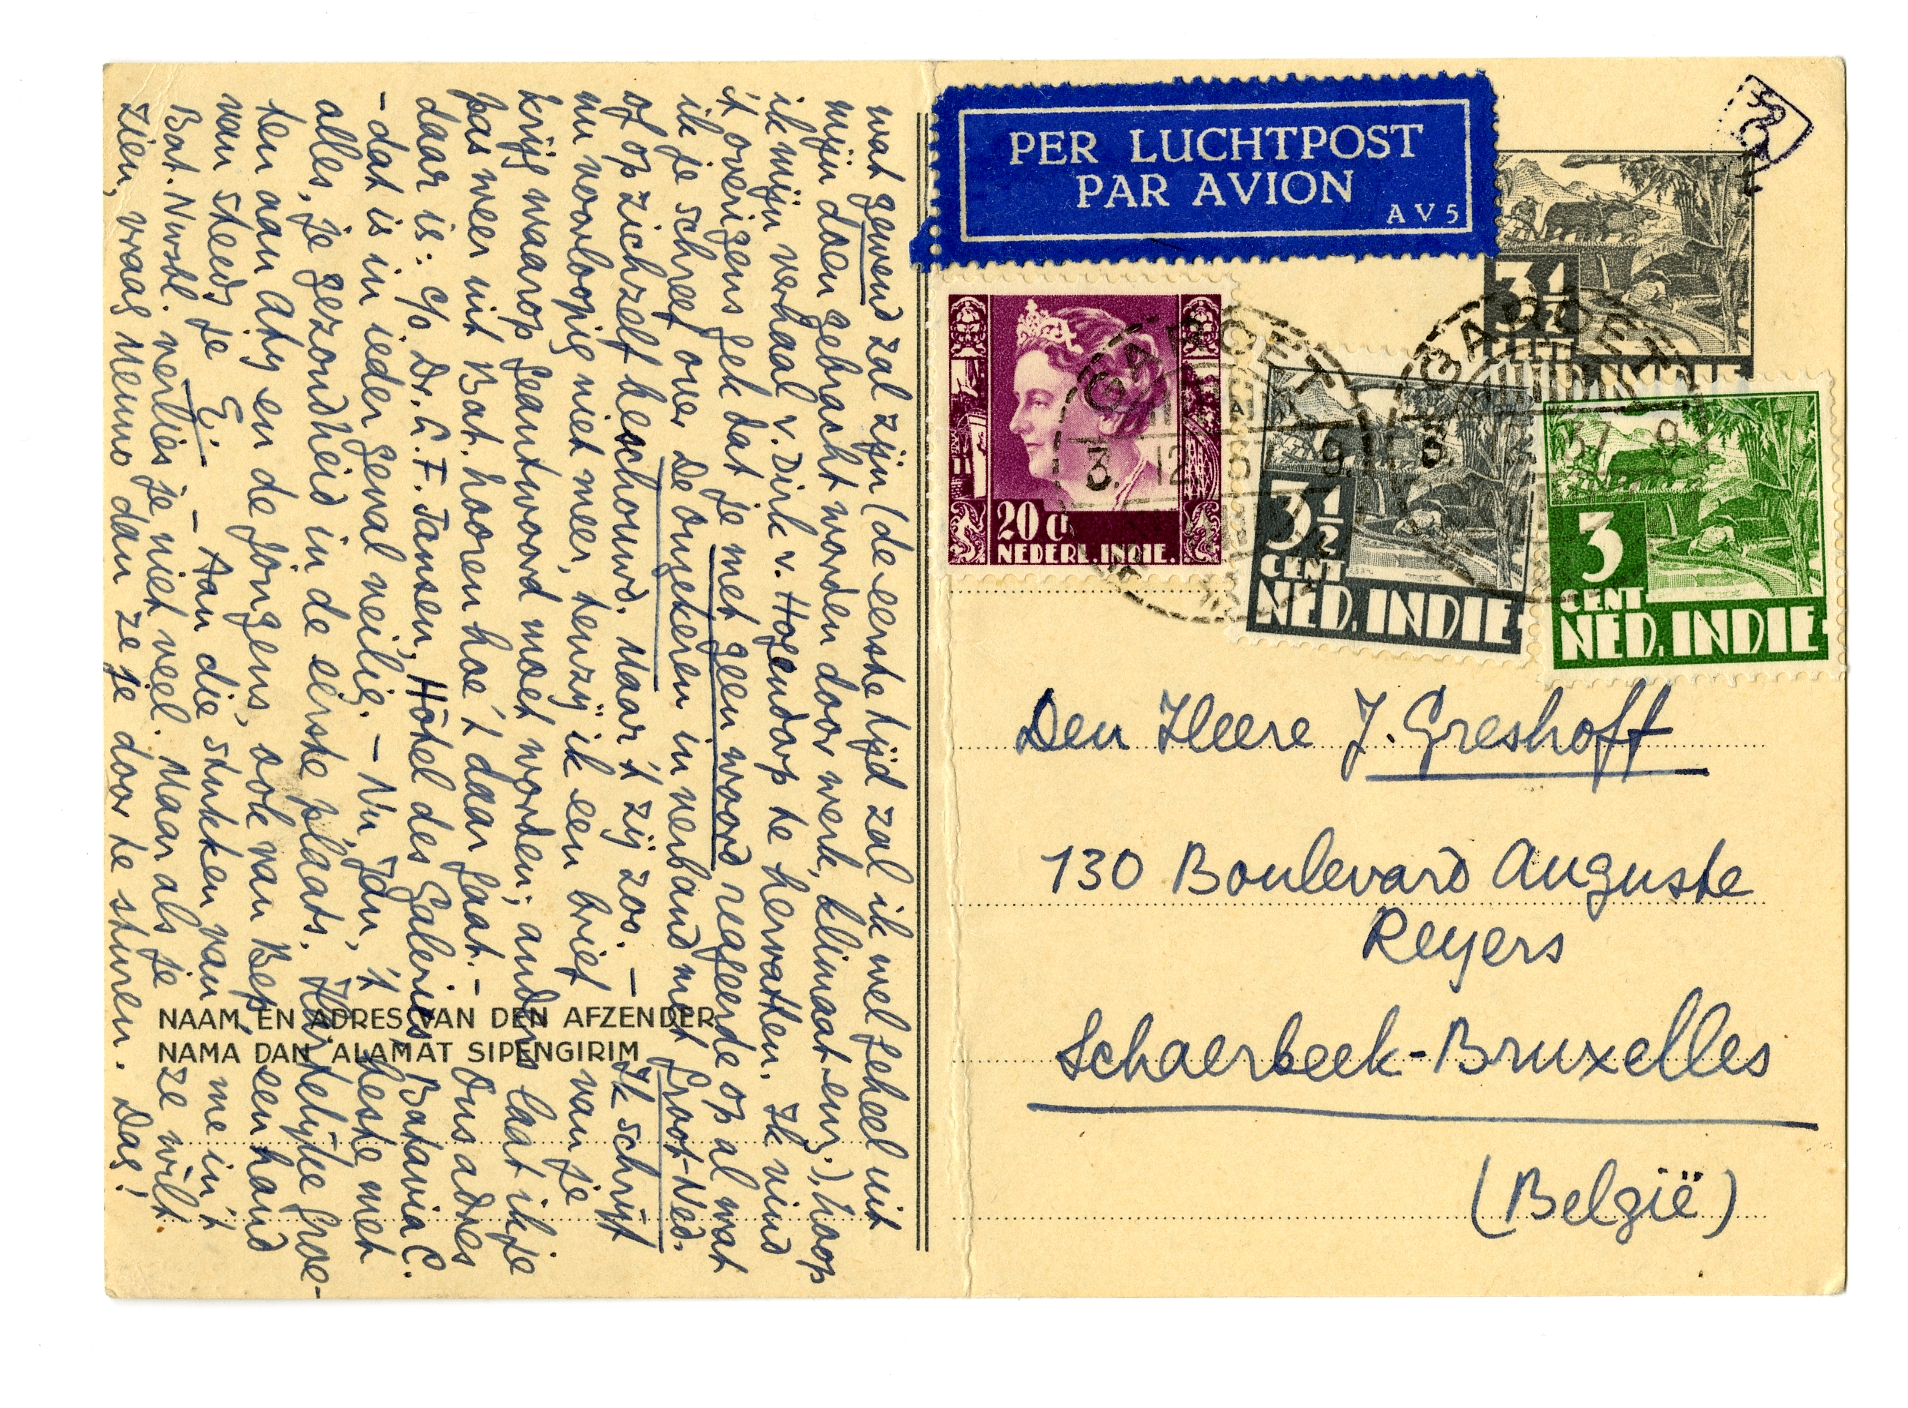 wat gewend zal zijn (de eerste tijd zal ik wel geheel uit
mijn doen gebracht worden door werk, klimaat enz.), hoop
ik mijn verhaal v. Dirk v. Hogendorp te hervatten. Ik vind
't overigens gek dat je met geen woord reageerde op al wat
ik je schreef over De onzekeren in verband met Groot-Ned.
of op zichzelf beschouwd. Maar 't zij zoo. — Ik schrijf
nu voorloopig niet meer, tenzij ik een brief van je
krijg waarop geantwoord moet worden; anders laat ik je
pas weer uit Bat. hooren hoe 't daar gaat. — Ons adres
daar is: c/o Dr. C. F. Jansen, Hôtel des Galeries, Batavia C.
– dat is in ieder geval veilig. — Nu, Jan, 't beste met
alles, je gezondheid in de eerste plaats. Hartelijke groe-
ten aan Aty en de jongens, ook van Bep, een hand
van steeds je E.
— Aan die stukken van me in 't
Bat. Nwsbl. verlies je niet veel. Maar als je ze wilt
zien, vraag Menno dan ze je door te sturen. Dag!
NAAM EN ADRES VAN DEN AFZENDER
NAMA DAN ALAMAT SIPENGIRIM
PER LUCHTPOST
PAR AVION
AV5
3½
CENT
NED. INDIE
20 ct
NEDERL. INDIE.
GAROET
3. 12. 9
3½
CENT
NED. INDIE
GAROET
3. 37. 9
3
CENT
NED. INDIE
Den Heere J. Greshoff
130 Boulevard Auguste
Reyers
Schaerbeek-Bruxelles
(België)